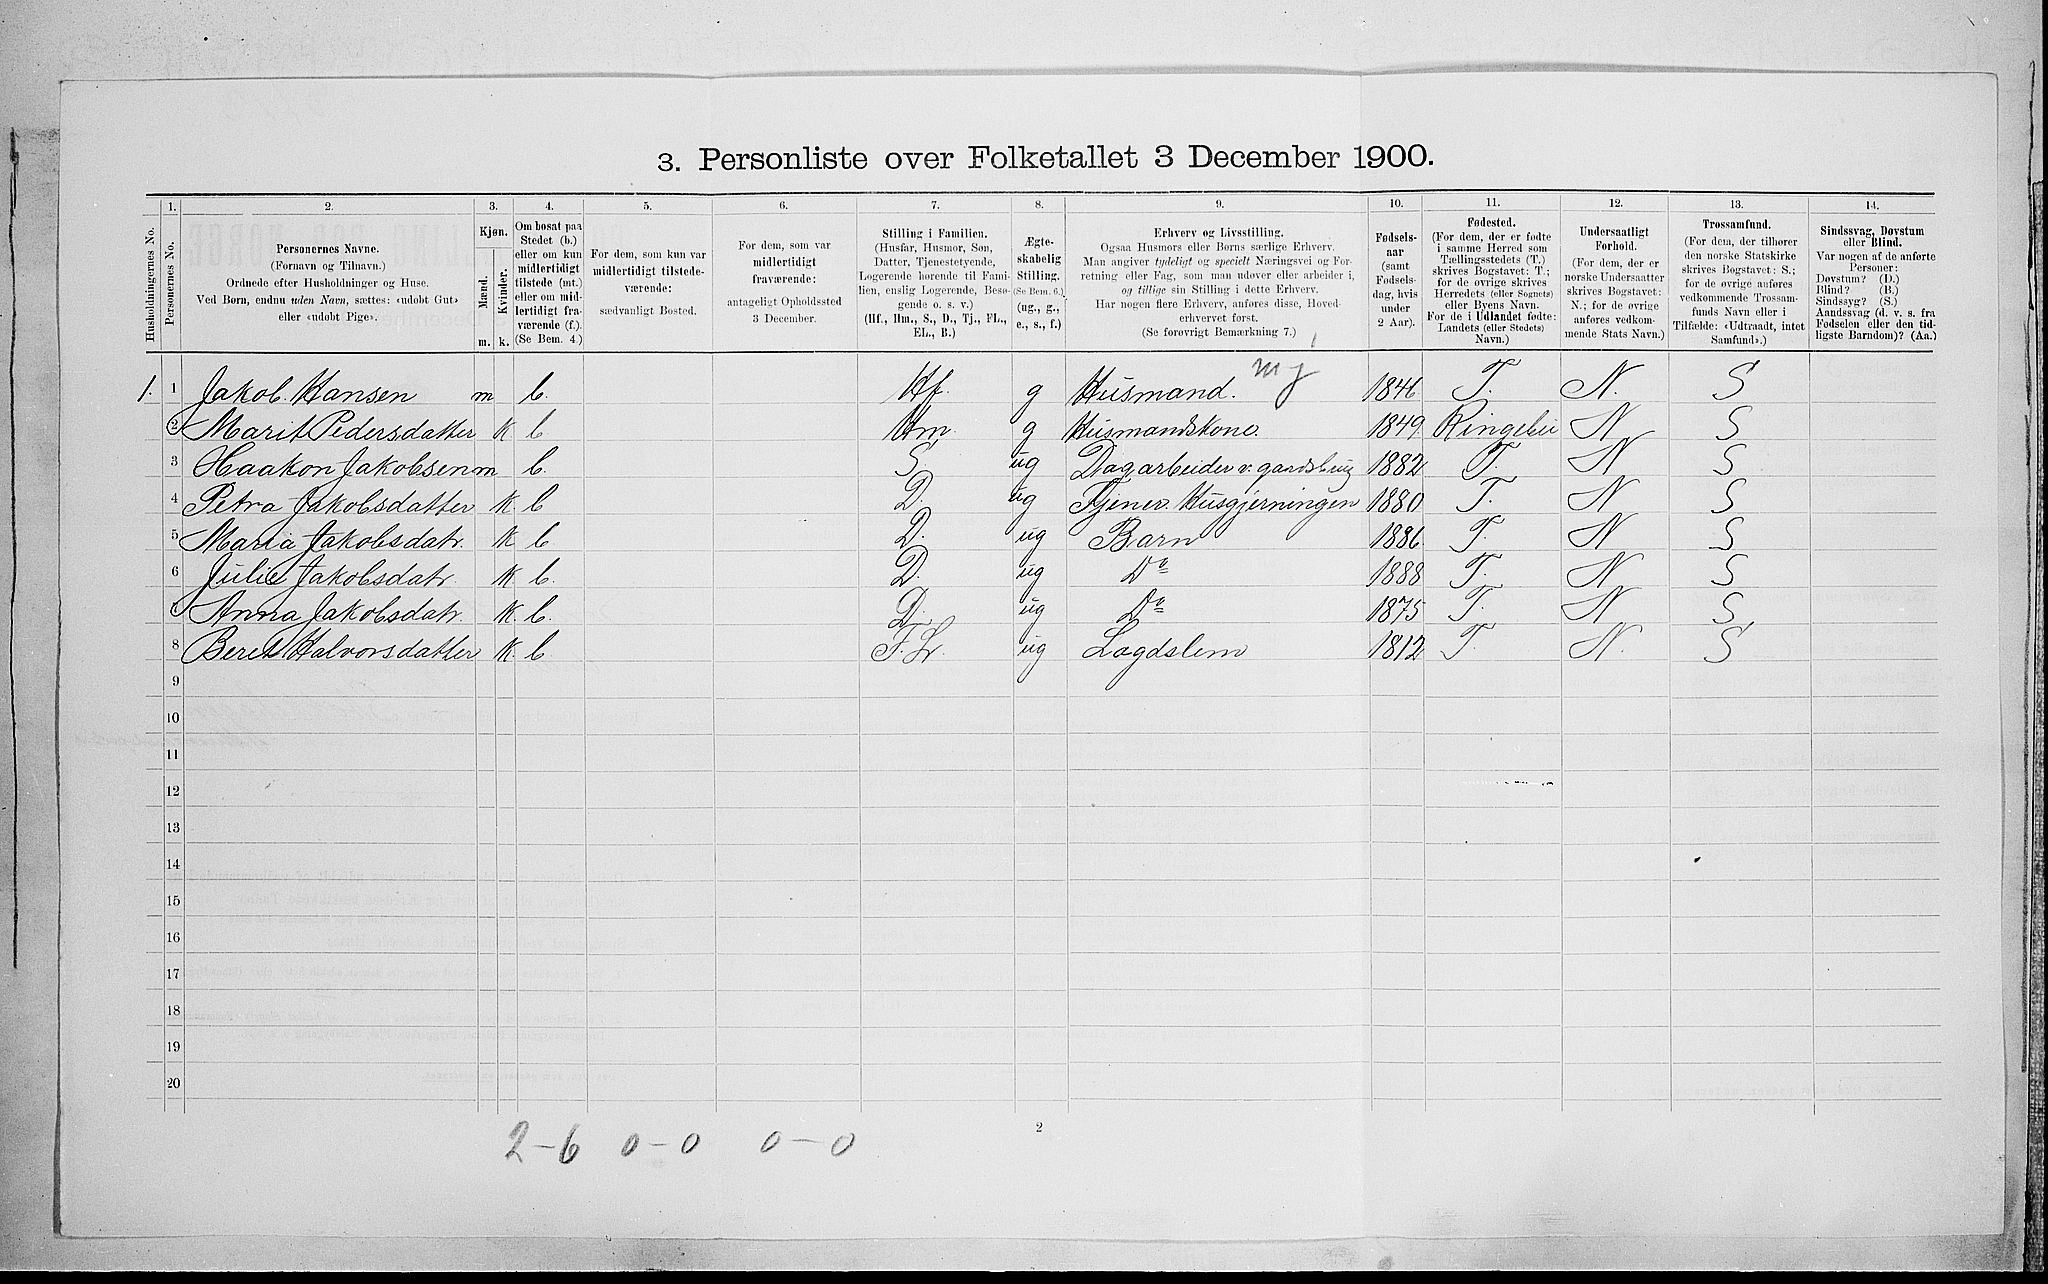 3. Personliste over Folketallet 3 December 1900.
Husholdningernes No.
1.
Personernes No.
2.
Personernes Navne.
(Fornavn og Tilnavn.)
Ordnede efter Husholdninger og Huse.
Ved Børn, endnu uden Navn, sættes: «udøbt Gut»
eller «udøbt Pige».
3.
Kjøn.
Mænd.
Kvinder.
m. k.
4.
Om bosat paa
Stedet (b.)
eller om kun
midlertidigt
tilstede (mt.)
eller om mid-
lertidigt fra-
værende (f.).
(Se Bem. 4.)
5.
For dem, som kun var
midlertidigt tilstede-
værende:
sædvanligt Bosted.
6.
For dem, som var
midlertidigt
fraværende:
antageligt Opholdssted
3 December.
7.
Stilling i Familien.
(Husfar, Husmor, Søn,
Datter, Tjenestetyende,
Logerende hørende til Fami-
lien, enslig Logerende, Besø-
gende o. s. v.)
(Hf., Hm., S., D., Tj., FL.,
EL., B.)
8.
Ægte-
skabelig
Stilling.
(Se Bem. 6.)
(ug., g.,
e., s., f.)
9.
Erhverv og Livsstilling.
Ogsaa Husmors eller Børns særlige Erhverv.
Man angiver tydeligt og specielt Næringsvei og For-
retning eller Fag, som man udøver eller arbeider i,
og tillige sin Stilling i dette Erhverv.
Har nogen flere Erhverv, anføres disse, Hoved-
erhvervet først.
(Se forøvrigt Bemærkning 7.)
10.
Fødsels-
aar
(samt
Fødsels-
dag, hvis
under
2 Aar).
11.
Fødested.
(For dem, der er fødte
i samme Herred som
Tællingsstedets (T.)
skrives Bogstavet: T.;
for de øvrige skrives
Herredets (eller Sognets)
eller Byens Navn.
For de i Udlandet fødte:
Landets (eller Stedets)
Navn.)
12.
Undersaatligt
Forhold.
(For dem, der er
norske Undersaatter
skrives Bogstavet:
N.; for de øvrige
anføres vedkom-
mende Stats Navn.)
13.
Trossamfund.
(For dem, der tilhører
den norske Statskirke
skrives Bogstavet: S.;
for de øvrige anføres
vedkommende Trossam-
funds Navn eller i
Tilfælde: «Udtraadt, intet
Samfund».)
14.
Sindssvag, Døvstum
eller Blind.
Var nogen af de anførte
Personer:
Døvstum? (D.)
Blind? (B.)
Sindssyg? (S.)
Aandssvag (d. v. s. fra
Fødselen eller den tid-
ligste Barndom)? (Aa.)
1. 1 Jakob Hansen m b. Hf. g Husmand. m j 1846 T. N. S
2 Marit Pedersdatter k b Hm g Husmandskone. 1849 Ringebu N S
3 Haakon Jakobsen m b. S. ug Dagarbeider v. gaardsbrug 1882 T. N S
4 Petra Jakobsdatter k b D. ug Tjener. Husgjerningen 1880 T. N S
5 Maria Jakobsdatr. k b D. ug Barn 1886 T. N S
6 Julie Jakobsdatr. k b. D. ug Do 1888 T. N S
7 Anna Jakobsdatr. k b. D. ug Do 1875 T. N S
8 Beret Halvorsdatter k b. F.L. ug Lægdslem 1812 T. N. S
9
10
11
12
13
14
15
16
17
18
19
20
2
2-6 0-0 0-0